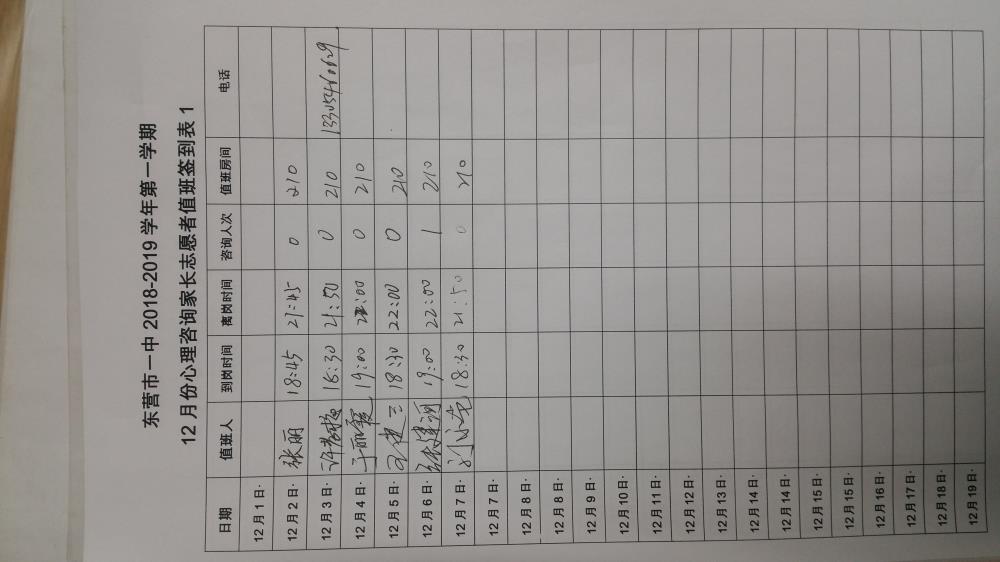 东营市一中 2018-2019 学年第一学期
12 月份心理咨询家长志愿者值班签到表 1
日期 值班人 到岗时间 离岗时间 咨询人次 值班房间 电话
12月1日·
12月2日· 张丽 18:45 21:45 0 210
12月3日· 21:50 0 210
12月4日· 19:00 22:00 0 210
12月5日· 18:30 22:00 0 210
12月6日· 19:00 22:00 1 210
12月7日· 18:30 21:50 0 210
12月7日·
12月8日·
12月8日·
12月9日·
12月10日·
12月11日·
12月12日·
12月13日·
12月14日·
12月14日·
12月15日·
12月15日·
12月16日·
12月17日·
12月18日·
12月19日·